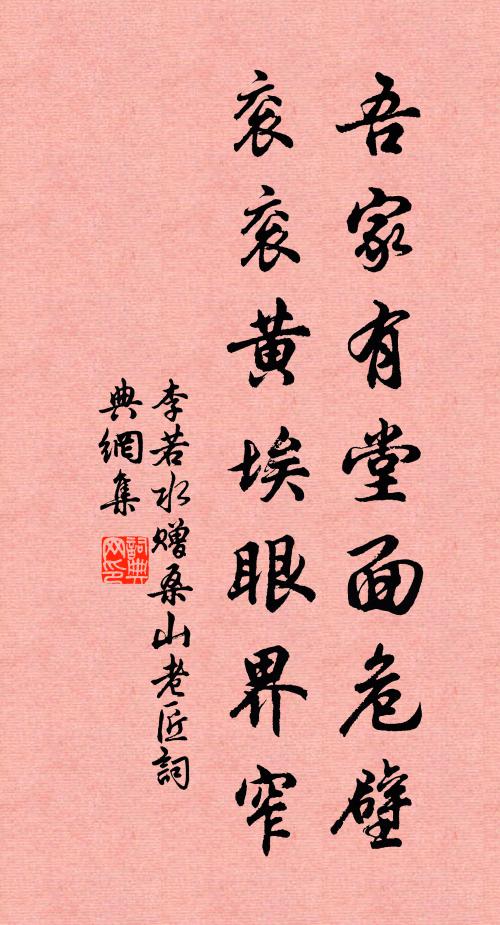 吾家有堂面危壁
衮衮黄埃眼界窄
李若水赠桑山老匠詞
典網集
詞典
网印